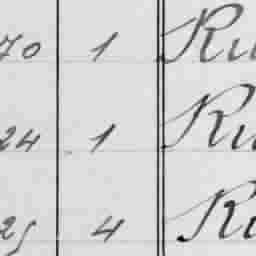 70 1 Ru
24 1 Ru
25 4 Ru